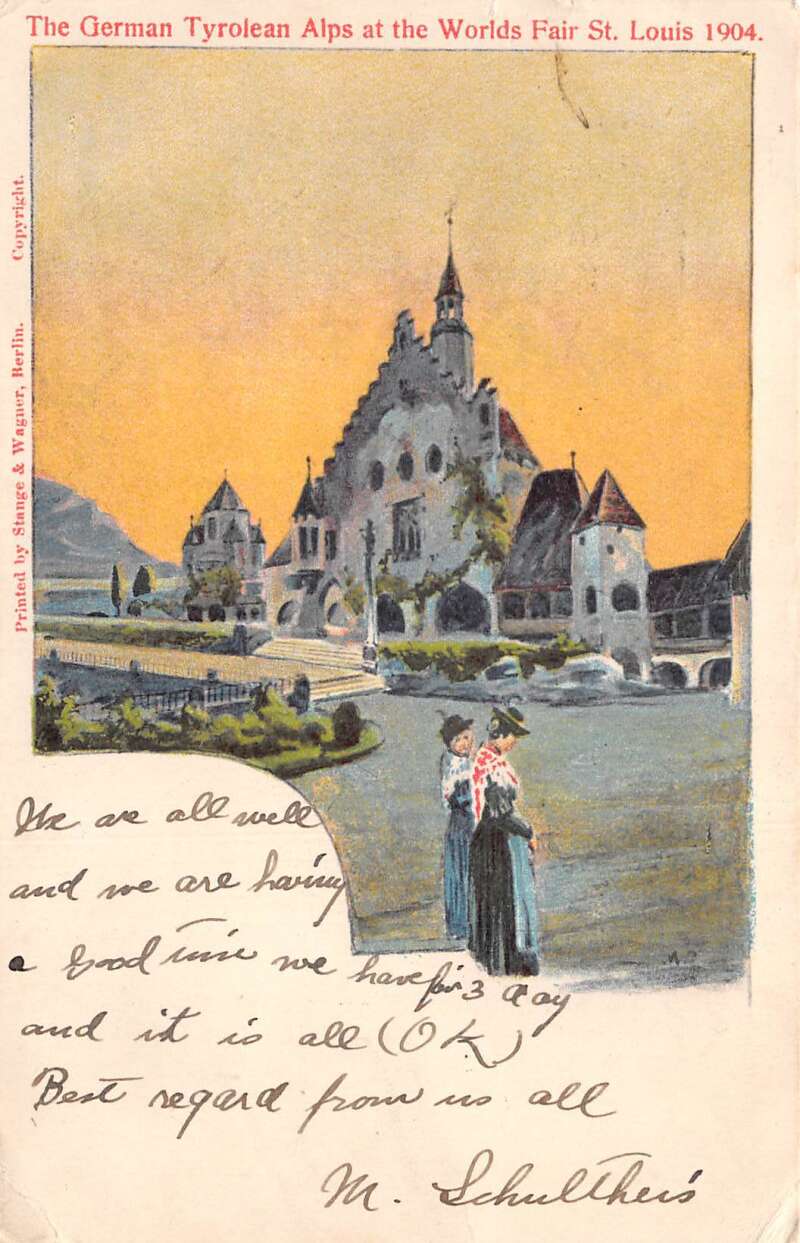 The German Tyrolean Alps at the Worlds Fair St. Louis 1904.
Printed by Stange & Wagner, Berlin. Copyright.
We are all well
and we are having
a good time we have for 3 day
and it is all (OK)
Best regard from us all
M. Schultheis